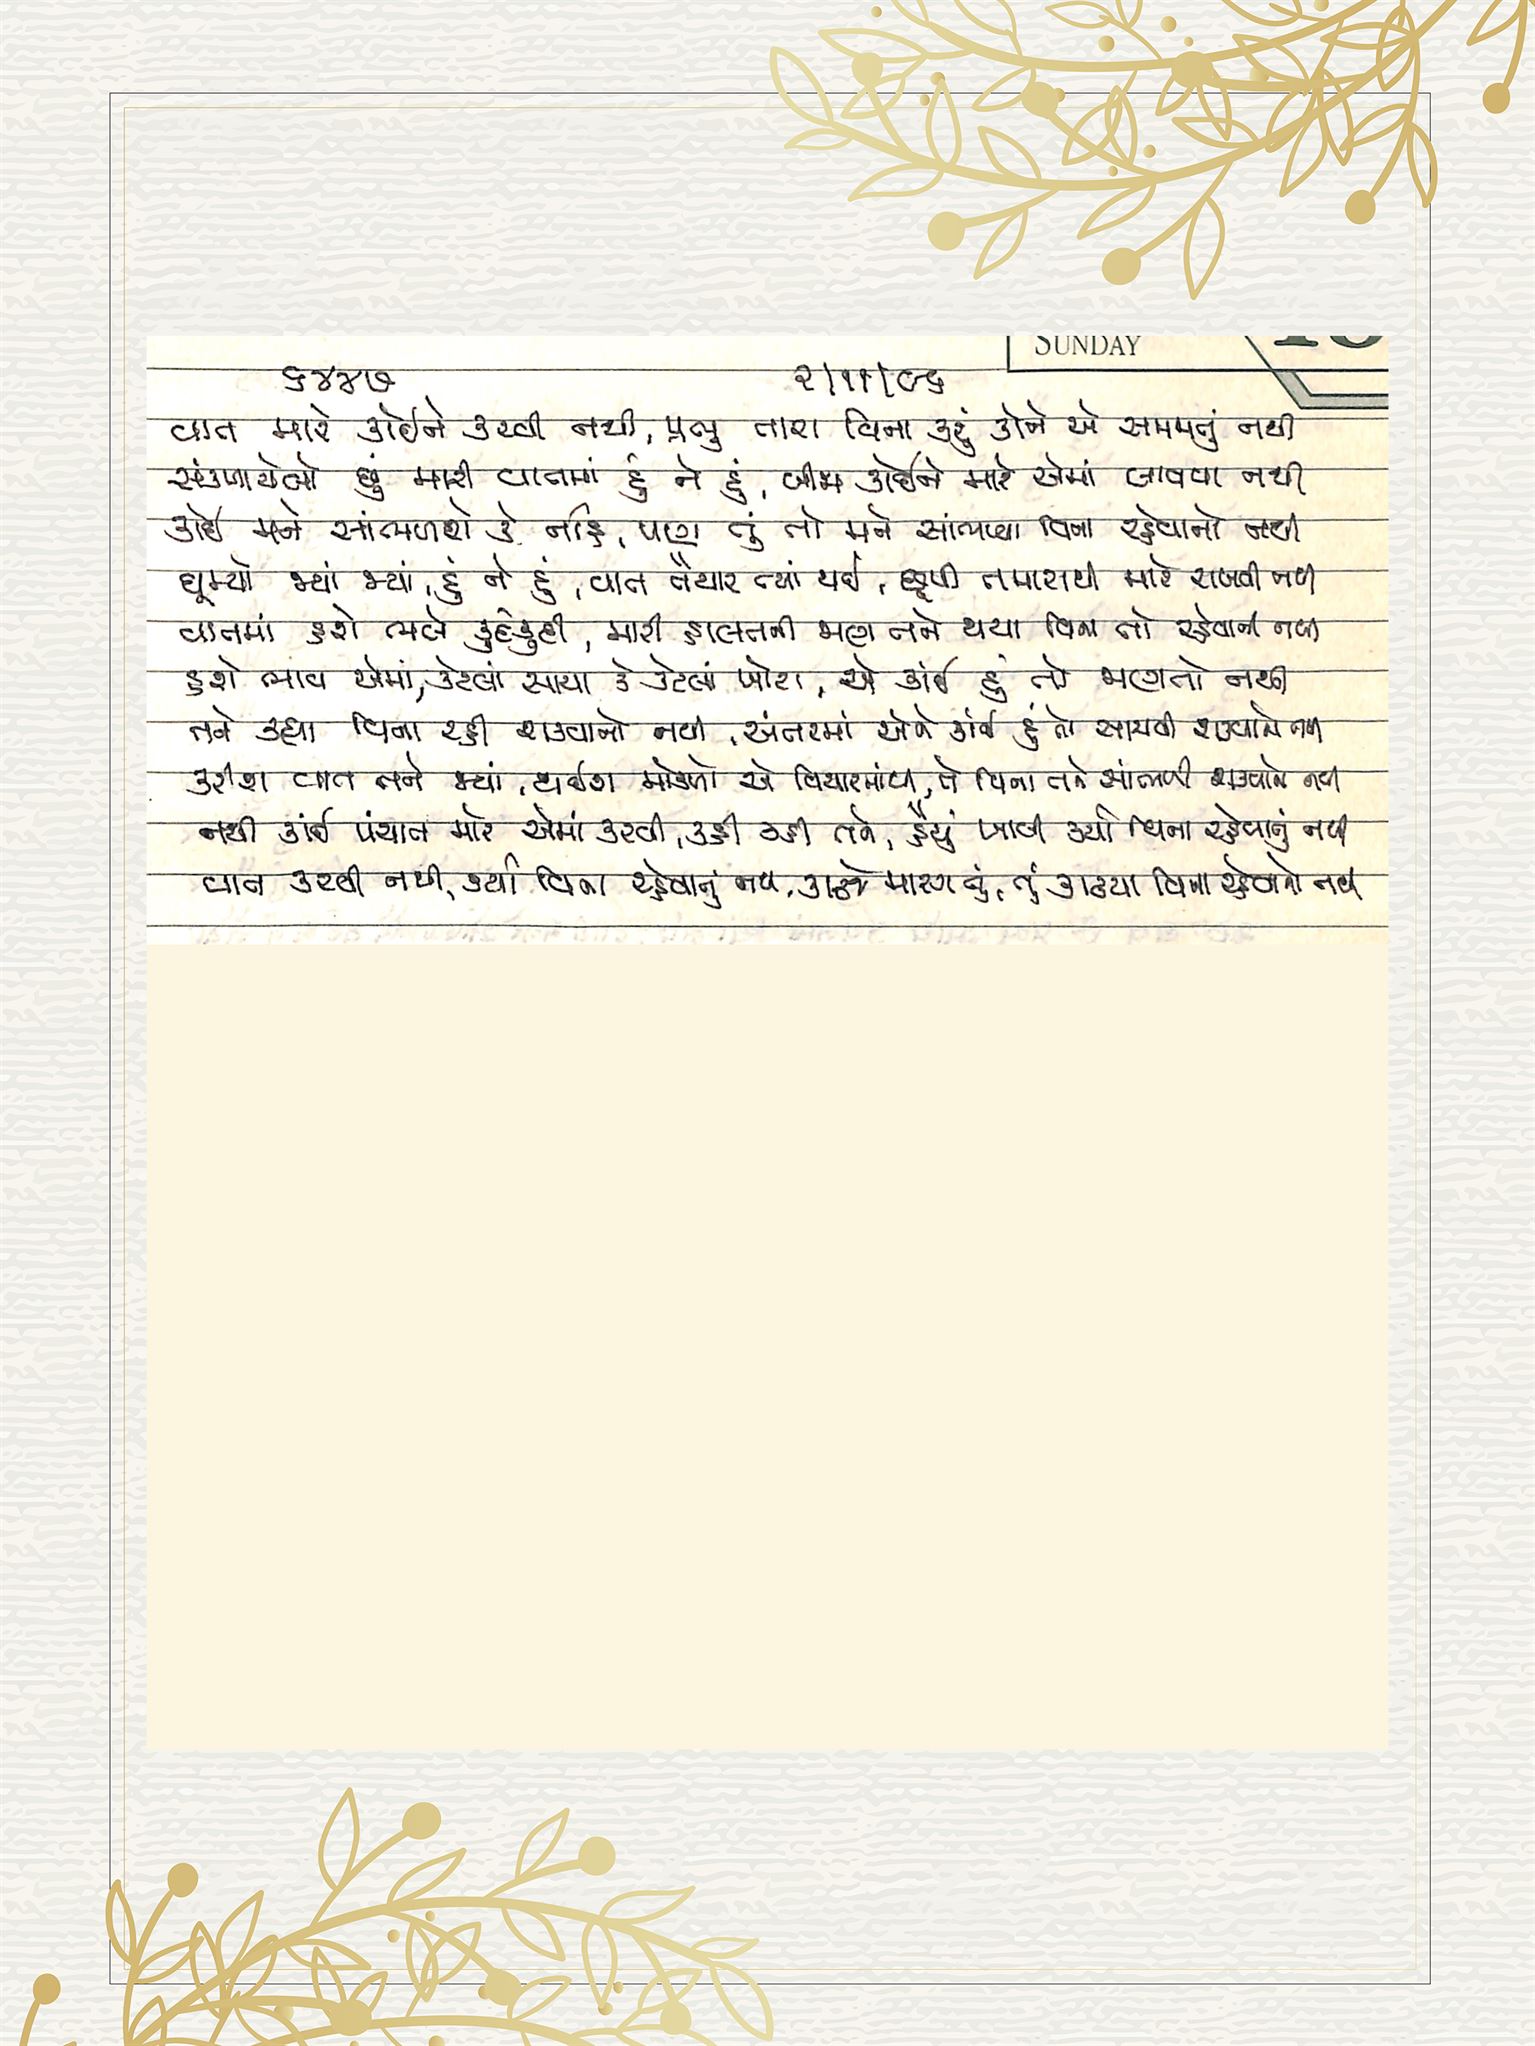 SUNDAY
૬૪૪૭ ૨/૧૧/૯૬
વાત મારે કોઈને કરવી નથી, પ્રભુ તારા વિના કહું કોને એ સમજાતું નથી
સંકળાયેલો છું મારી વાતમાં હું ને હું, બીજા કોઈને મારે એમાં લાવવા નથી
કોઈ મને સાંભળશે કે નહિ, પણ તું તો મને સાંભળ્યા વિના રહેવાનો નથી
ઘૂમ્યો જ્યાં જ્યાં, હું ને હું, વાત તૈયાર ત્યાં થઈ, છૂપી તમારાથી મારે રાખવી નથી
વાતમાં હશે ભલે કુહેકુહી, મારી હાલતની જાણ તને થયા વિના તો રહેવાની નથી
હશે ભાવ એમાં, કેટલાં સાચા કે કેટલાં ખોટા, એ કાંઈ હું તો જાણતો નથી
તને કહ્યા વિના રહી શકવાનો નથી, અંતરમાં એને કાંઈ હું તો સાચવી શકવાનો નથી
કરીશ વાત તને જ્યાં, થઈશ મોકળો એ વિચારમાંથી, તે વિના તને સાંભળી શકવાનો નથી
નથી કાંઈ પંચાત મારે એમાં કરવી, કહી કહી તને, હૈયું ખાલી કર્યા વિના રહેવાનું નથી
વાત કરવી નથી, કર્યા વિના રહેવાનું નથી, કાઢજે મારગ તું, તું કાઢયા વિના રહેવાનો નથી